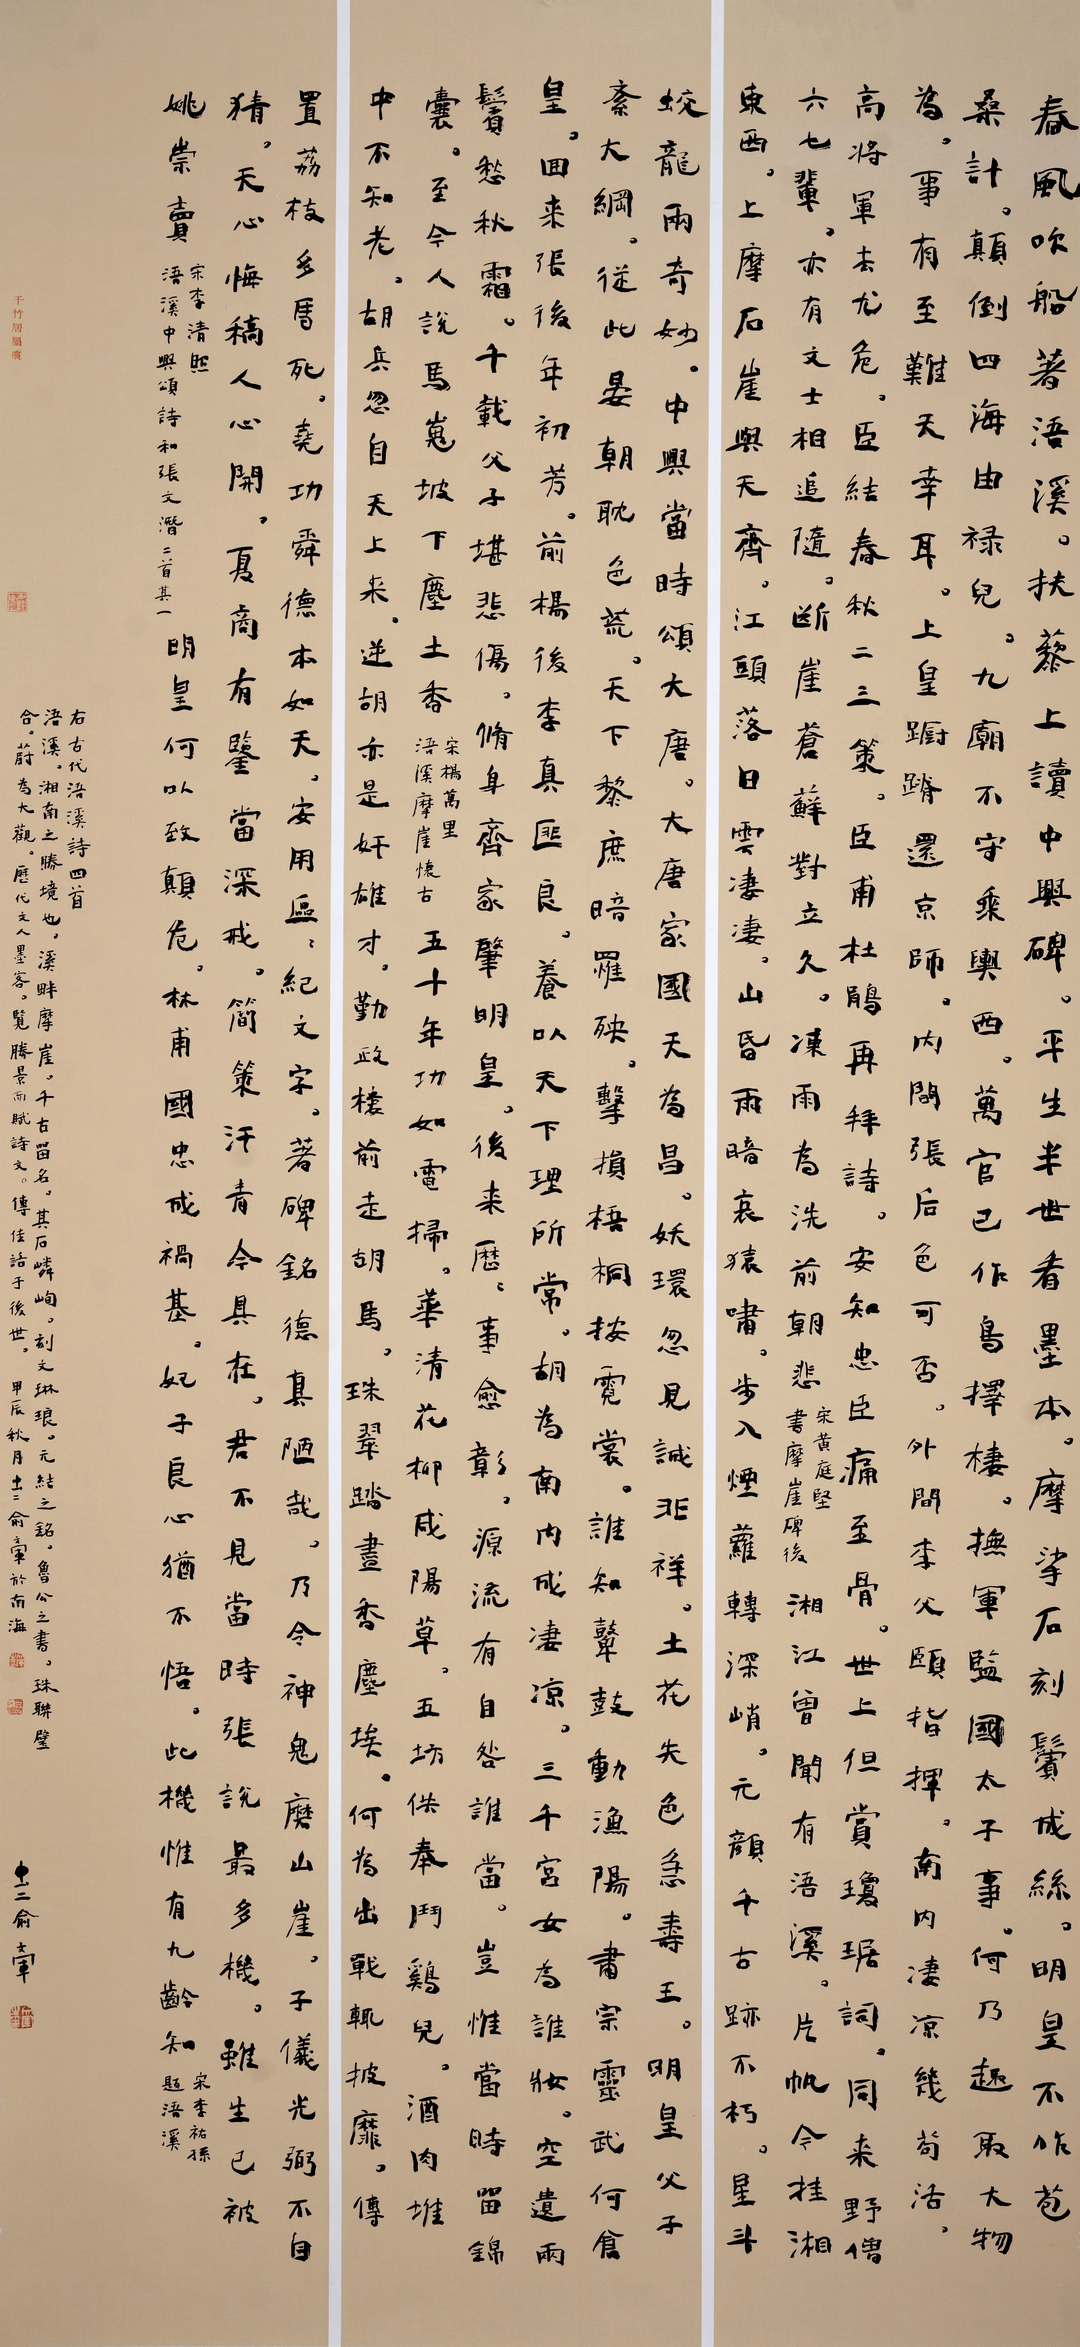 春風吹船著浯溪。扶藜上讀中興碑。平生半世看墨本。摩挲石刻鬢成絲。明皇不作苞
桑計。顛倒四海由禄兒。九廟不守乘輿西。萬官已作鳥擇棲。撫軍監國太子事。何乃趣取大物
為。事有至難天幸耳。上皇跼蹐還京師。内間張后色可否。外間李父頤指揮。南内凄凉幾苟活。
高將軍去尤危。臣結春秋二三策。臣甫杜鵑再拜詩。安知忠臣痛至骨。世上但賞瓊琚詞。同来野僧
六七輩。亦有文士相追隨。斷崖蒼蘚對立久。凍雨為洗前朝悲
宋黄庭堅
書摩崖碑後
湘江曾聞有浯溪。片帆今挂湘
東西。上摩石崖與天齊。江頭落日雲凄凄。山昏雨暗哀猿嘯。步入煙蘿轉深峭。元顔千古跡不朽。星斗
蛟龍兩奇妙。中興當時頌大唐。大唐家國天為昌。妖環忽見誠非祥。土花失色急壽王。明皇父子
紊大綱。從此晏朝耽色荒。天下黎庶暗罹殃。擊損梧桐按霓裳。誰知鼙鼓動漁陽。肅宗靈武何倉
皇。回来張後年初芳。前楊後李真匪良。養以天下理所常。胡為南内成凄凉。三千宮女為誰妝。空遺兩
鬢愁秋霜。千載父子堪悲傷。脩身齊家肇明皇。後来歷歷事愈彰。源流有自咎誰當。豈惟當時留錦
囊。至今人說馬嵬坡下塵土香
宋楊萬里
浯溪摩崖懷古
五十年功如電掃。華清花柳咸陽草。五坊供奉鬥鷄兒。酒肉堆
中不知老。胡兵忽自天上来。逆胡亦是奸雄才。勤政樓前走胡馬。珠翠踏盡香塵埃。何為出戰輒披靡。傳
置荔枝多馬死。堯功舜德本如天。安用區區紀文字。著碑銘德真陋哉。乃令神鬼磨山崖。子儀光弼不自
猜。天心悔禍人心開。夏商有鑒當深戒。簡策汗青今具在。君不見當時張說最多機。雖生已被
姚崇賣
宋李清照
浯溪中興頌詩和張文潛二首其一
明皇何以致顛危。林甫國忠成禍基。妃子良心猶不悟。此機惟有九齡知
宋李祐孫
題浯溪
右古代浯溪詩四首
浯溪。湘南之勝境也。溪畔摩崖。千古留名。其石嶙峋。刻文琳琅。元結之銘。魯公之書。珠聯璧
合。蔚為大觀。歷代文人墨客。覽勝景而賦詩文。傳佳話于後世。甲辰秋月 俞 於南海
俞
千竹居屬